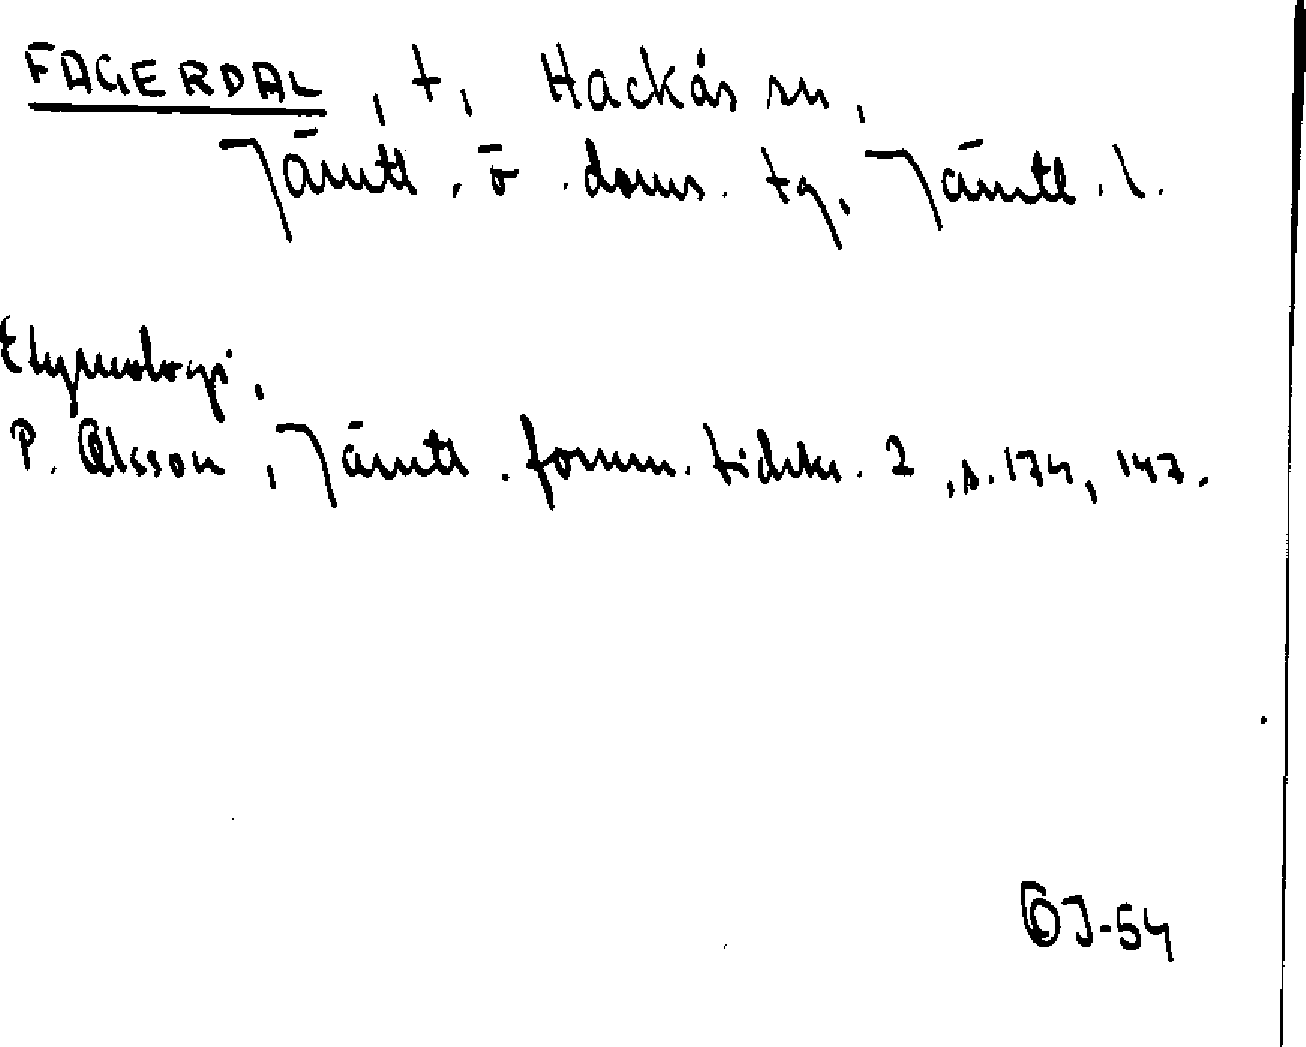 FAGERDAL, t, Hackås sn,
Jämtl. ö. doms. tg, Jämtl. l.
Etymologi.
P. Olsson, Jämtl. fornm. tidskr. 2, s. 174, 147.
OJ-54